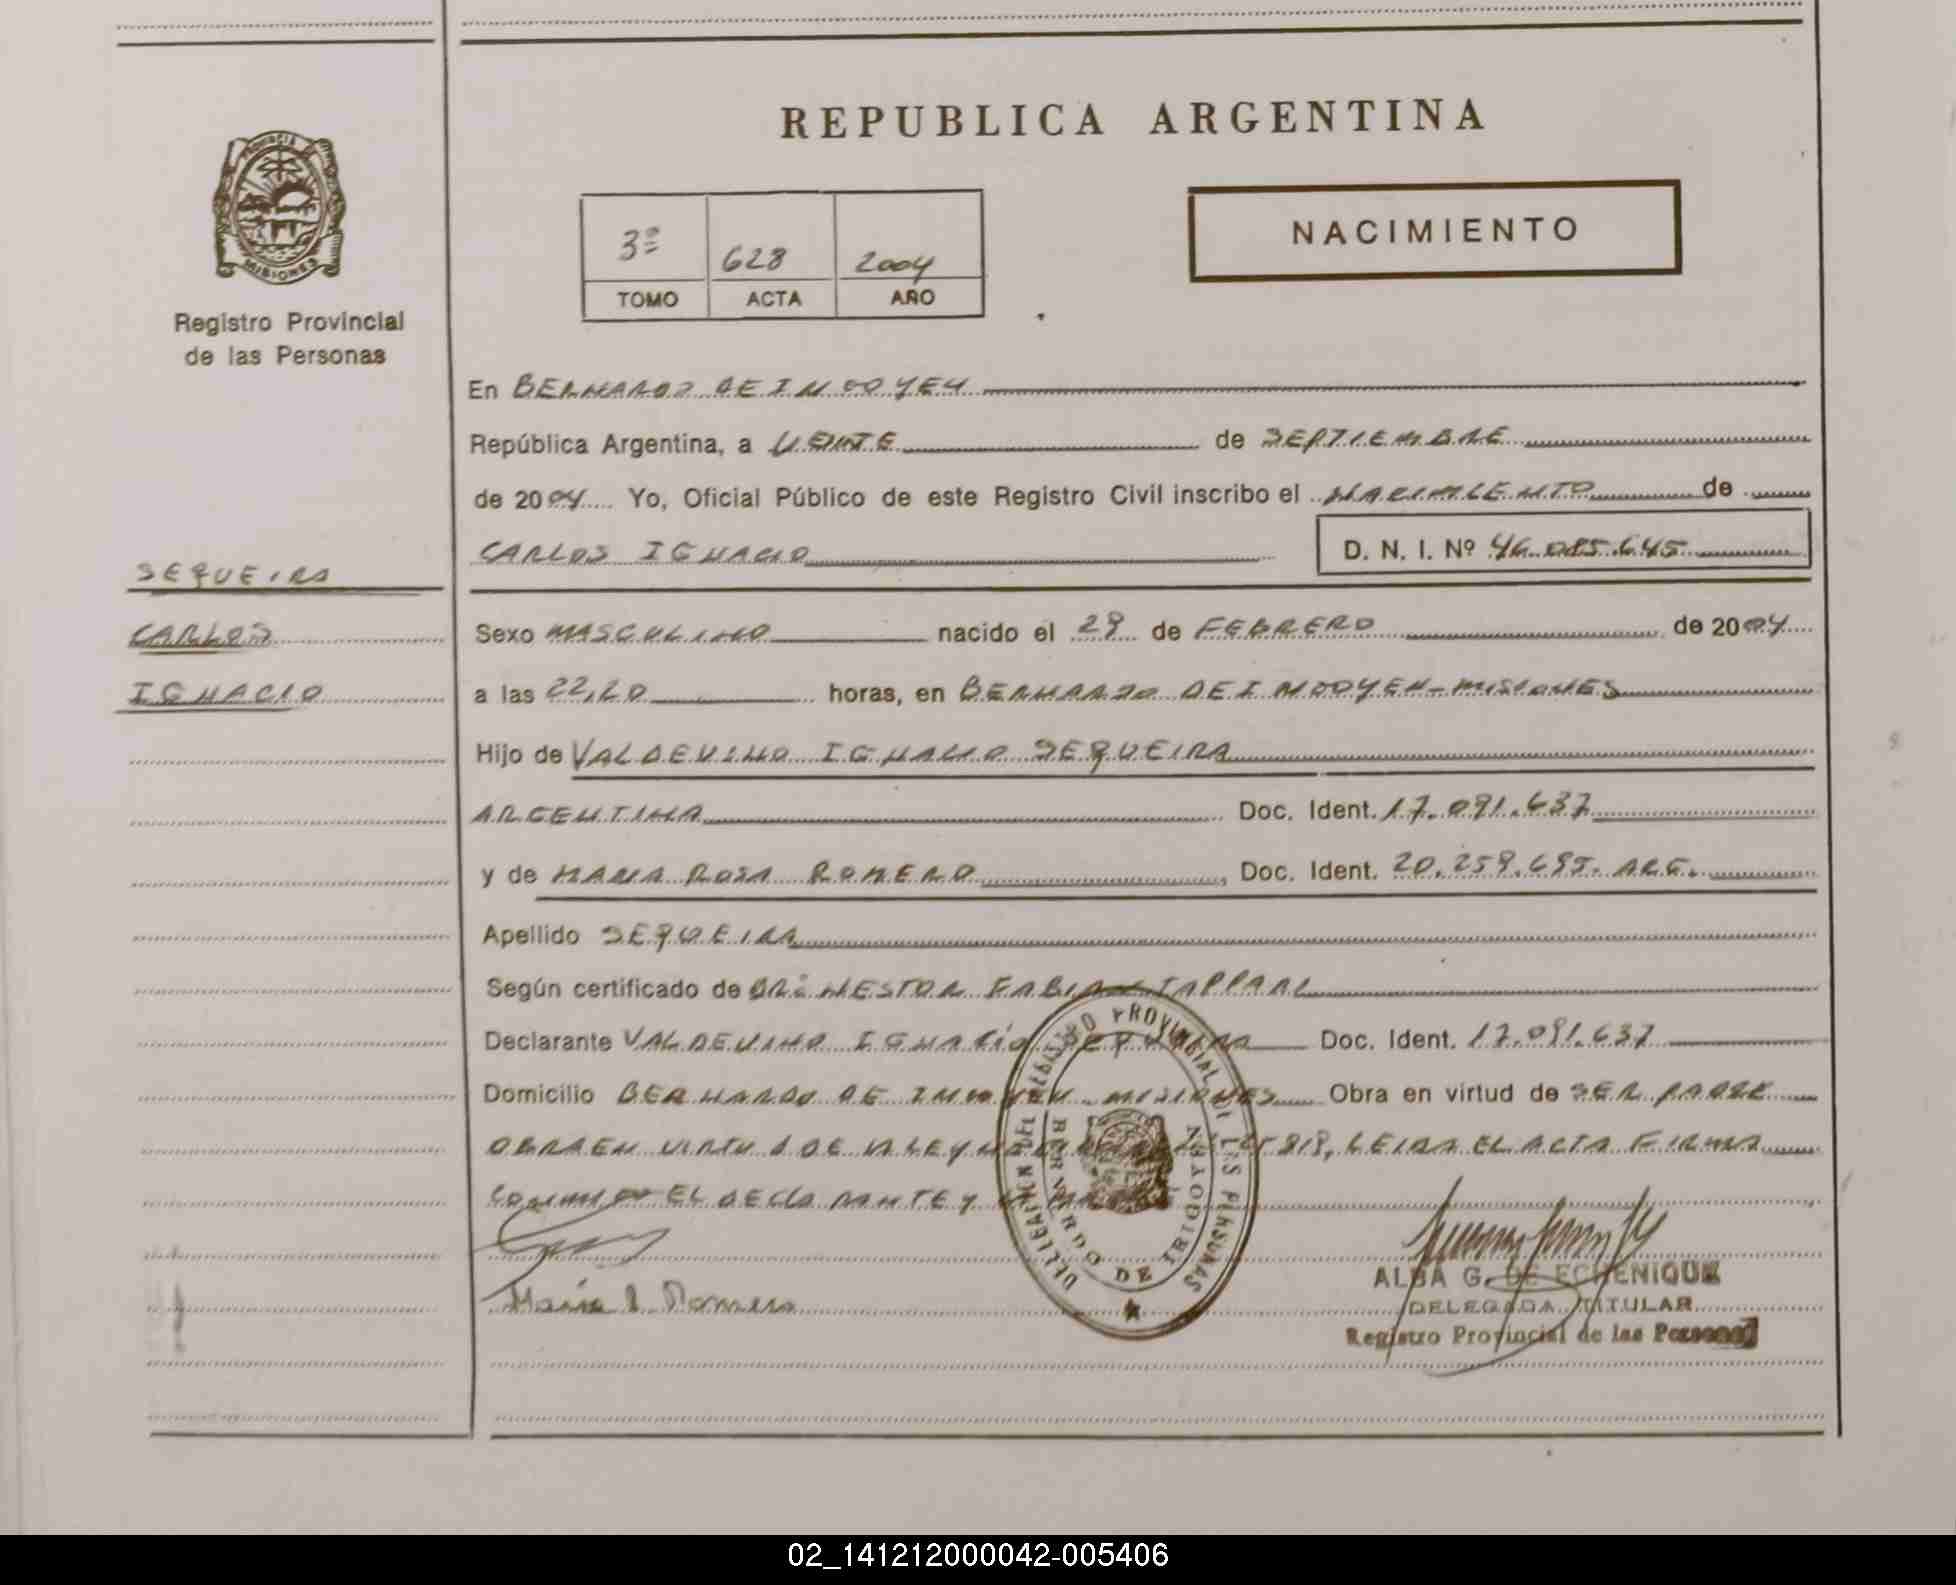 REPUBLICA ARGENTINA
PROVINCIA DE MISIONES
Registro Provincial
de las Personas
3º 628 2004
TOMO ACTA AÑO
NACIMIENTO
En BERNARDO DE IRIGOYEN
República Argentina, a VEINTE de SEPTIEMBRE
de 2004 Yo, Oficial Público de este Registro Civil inscribo el NACIMIENTO de
CARLOS IGNACIO D. N. I. Nº 46.085.645
SEQUEIRA
CARLOS
IGNACIO
Sexo MASCULINO nacido el 29 de FEBRERO de 2004
a las 22,20 horas, en BERNARDO DE IRIGOYEN-MISIONES
Hijo de VALDEVINO IGNACIO SEQUEIRA
ARGENTINA Doc. Ident. 17.091.637
y de MARIA ROSA ROMERO, Doc. Ident. 20.259.695. ARG.
Apellido SEQUEIRA
Según certificado de DR: NESTOR FABIAN
Declarante VALDEVINO IGNACIO SEQUEIRA Doc. Ident. 17.091.637
Domicilio BERNARDO DE IRIGOYEN-MISIONES Obra en virtud de SER PADRE
OBRA EN VIRTUD DE LA LEY 25 819, LEIDA EL ACTA FIRMA
CONMIGO EL DECLARANTE Y
Maria R. Romero
DELEGACION DEL REGISTRO PROVINCIAL DE LAS PERSONAS
BERNARDO DE IRIGOYEN
ALBA G. DE ECHENIQUE
DELEGADA TITULAR
Registro Provincial de las Personas
02_141212000042-005406